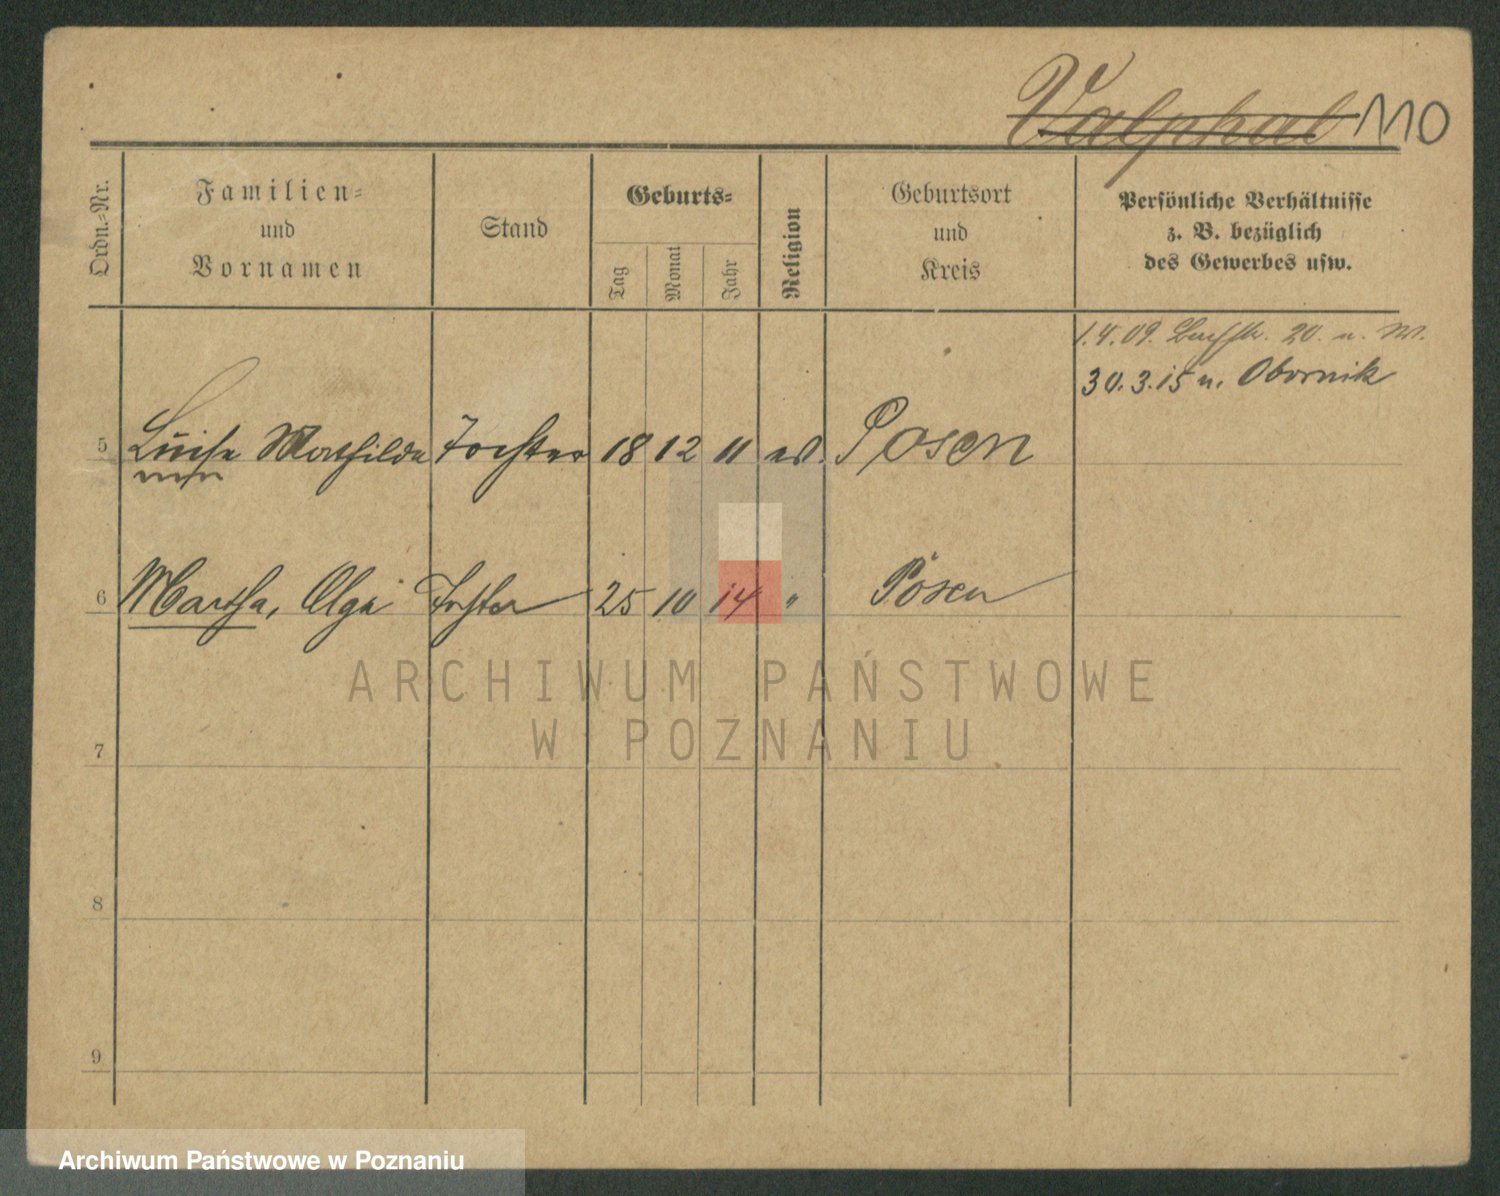 Valphal 110
Ordn.-Nr.
Familien-
und
Vornamen
Stand
Geburts-
Tag
Monat
Jahr
Religion
Geburtsort
und
Kreis
Persönliche Verhältnisse
z. B. bezüglich
des Gewerbes usw.
1.4.09. 20. u. W.
30.3.15 n. Obornik
5 Luise Mathilde Tochter 18 12 11 ev. Posen
6 Martha, Olga Tochter 25 10 14 " Posen
ARCHIWUM PAŃSTWOWE
W POZNANIU
7
8
9
Archiwum Państwowe w Poznaniu